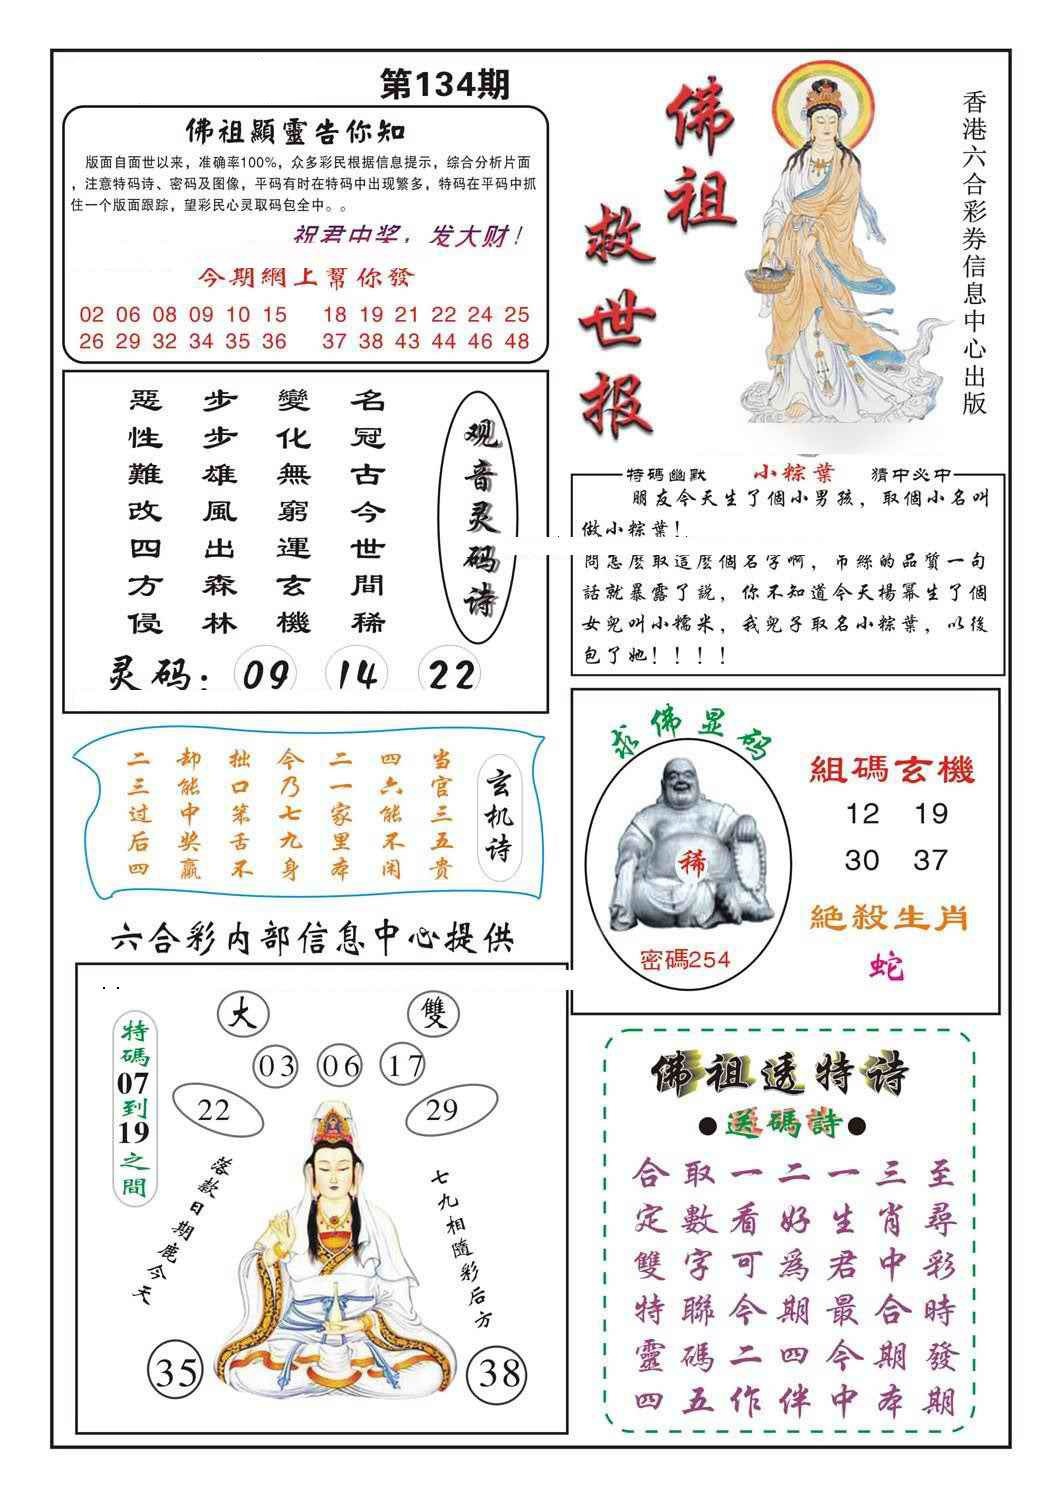 第134期
佛祖顯靈告你知
版面自面世以来，准确率100%，众多彩民根据信息提示，综合分析片面
，注意特码诗、密码及图像，平码有时在特码中出现繁多，特码在平码中抓
住一个版面跟踪，望彩民心灵取码包全中。。
祝君中奖，发大财！
今期網上幫你發
02 06 08 09 10 15 18 19 21 22 24 25
26 29 32 34 35 36 37 38 43 44 46 48
佛祖
救世报
香港六合彩券信息中心出版
观音灵码诗
名冠古今世間稀
變化無窮運玄機
步步雄風出森林
惡性難改四方侵
灵码：09 14 22
特碼幽默 小粽葉 猜中必中
朋友今天生了個小男孩，取個小名叫
做小粽葉！
問怎麽取這麽個名字啊，吊絲的品質一句
話就暴露了説，你不知道今天楊冪生了個
女兒叫小糯米，我兒子取名小粽葉，以後
包了她！！！！
玄机诗
当官三五贵
四六能不闲
二一家里本
今乃七九身
拙口笨舌不
却能中奖赢
二三过后四
求佛显码
稀
密碼254
組碼玄機
12 19
30 37
絶殺生肖
蛇
六合彩内部信息中心提供
大 雙
03 06 17
22 29
特碼07到19之間
落款日期鹿今天
七九相隨彩后方
35 38
佛祖透特诗
●送碼詩●
至尋彩時發期
三肖中合期本
一生君最今中
二好為期四伴
一看可今二作
取數字聯碼五
合定雙特靈四